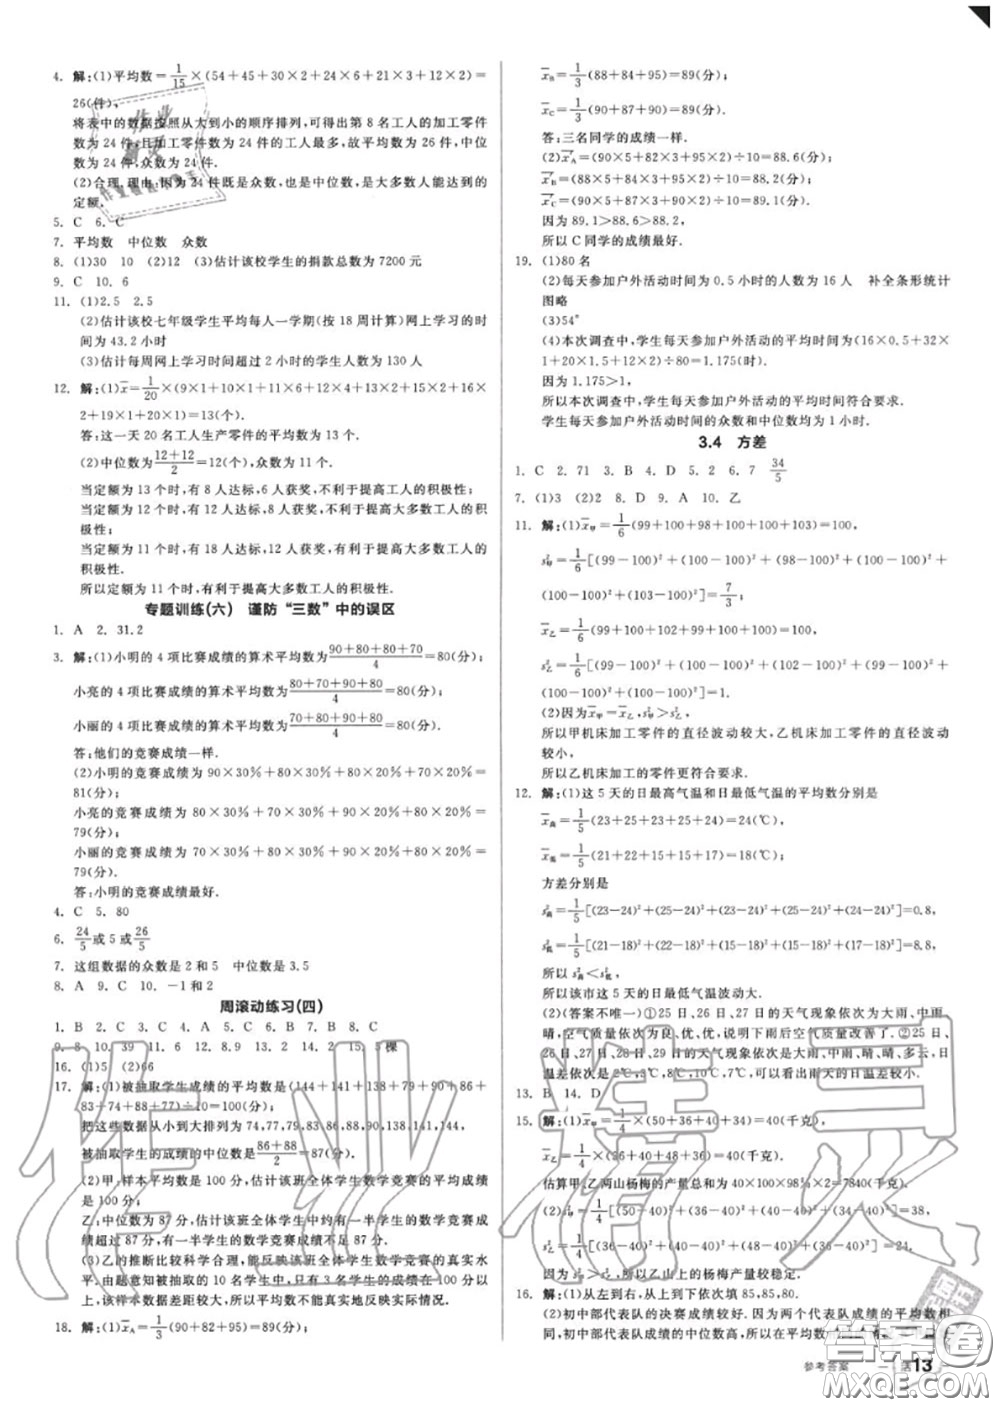 4. 解:(1)平均数=1/15×(54+45+30×2+24×6+21×3+12×2)=
26(件),
将表中的数据按照从大到小的顺序排列,可得出第8名工人的加工零
件数为24件,且加工件数为24件的工人最多,故平均数为26件,中位
数为24件,众数为24件.
(2)合理.理由:因为24件既是众数,也是中位数,是大多数人能达到的
定额.
5. C 6. C
7. 平均数 中位数 众数
8. (1)30 10 (2)12 (3)估计该校学生的捐款总数为7200元
9. C 10. 6
11. (1)2.5 2.5
(2)估计该校七年级学生平均每人一学期(按18周计算)网上学习的时
间为43.2小时
(3)估计每周网上学习时间超过2小时的学生人数为130人
12. 解:(1)x̄=1/20×(9×1+10×1+11×6+12×4+13×2+15×2+16×
2+19×1+20×1)=13(个).
答:这一天20名工人生产零件的平均数为13个.
(2)中位数为(12+12)/2=12(个),众数为11个.
当定额为13个时,有8人达标,6人获奖,不利于提高工人的积极性;
当定额为12个时,有12人达标,8人获奖,不利于提高大多数工人的积
极性;
当定额为11个时,有18人达标,12人获奖,有利于提高大多数工人的
积极性.
所以定额为11个时,有利于提高大多数工人的积极性.
专题训练(六) 谨防“三数”中的误区
1. A 2. 31.2
3. 解:(1)小明的4项比赛成绩的算术平均数为(90+80+80+70)/4=80(分);
小亮的4项比赛成绩的算术平均数为(80+70+90+80)/4=80(分);
小丽的4项比赛成绩的算术平均数为(70+80+90+80)/4=80(分).
答:他们的竞赛成绩一样.
(2)小明的竞赛成绩为90×30%+80×30%+80×20%+70×20%=
81(分);
小亮的竞赛成绩为80×30%+70×30%+90×20%+80×20%=
79(分);
小丽的竞赛成绩为70×30%+80×30%+90×20%+80×20%=
79(分).
答:小明的竞赛成绩最好.
4. C 5. 80
6. 24/5或5或26/5
7. 这组数据的众数是2和5 中位数是3.5
8. A 9. C 10. -1和2
周滚动练习(四)
1. B 2. C 3. C 4. D 5. C 6. B 7. B 8. C
9. 8 10. 39 11. 6 12. 8.9 13. 2 14. 2 15. 5 棵
16. (1)5 (2)66
17. 解:(1)被抽取学生成绩的平均数是(144+141+138+79+90+86+
83+74+88+77)÷10=100(分).
把这些数据从小到大排列为74,77,79,83,86,88,90,138,141,144,
被抽取学生成绩的中位数是(86+88)/2=87(分).
(2)甲:样本平均数为100分,估计该班全体学生数学竞赛的平均成绩
是100分;
乙:中位数为87分,估计该班全体学生中有一半学生的数学竞赛成绩
超过87分,有一半学生的数学竞赛成绩不足87分.
(3)乙的推断比较科学合理,能反映该班全体学生数学竞赛的真实水
平.由题意知被抽取的10名学生中,只有3名学生的成绩在100分以
上,该样本数据差距较大,其平均数不能真实地反映实际情况.
18. 解:(1)x̄A=1/3(90+82+95)=89(分);
x̄B=1/3(88+84+95)=89(分);
x̄C=1/3(90+87+90)=89(分);
答:三名同学的成绩一样.
(2)x̄′A=(90×5+82×3+95×2)÷10=88.6(分);
x̄′B=(88×5+84×3+95×2)÷10=88.2(分);
x̄′C=(90×5+87×3+90×2)÷10=89.1(分).
因为89.1>88.6>88.2,
所以C同学的成绩最好.
19. (1)80名
(2)每天参加户外活动时间为0.5小时的人数为16人 补全条形统计
图略
(3)54°
(4)本次调查中,学生每天参加户外活动的平均时间为(16×0.5+32×
1+20×1.5+12×2)÷80=1.175(时).
因为1.175>1,
所以本次调查中,学生每天参加户外活动的平均时间符合要求.
学生每天参加户外活动时间的众数和中位数均为1小时.
3.4 方差
1. C 2. 71 3. B 4. D 5. 2 6. 7 34/5
7. (1)3 (2)2 8. D 9. A 10. 乙
11. 解:(1)x̄甲=1/6(99+100+98+100+100+103)=100,
s²甲=1/6[(99-100)²+(100-100)²+(98-100)²+(100-100)²+
(100-100)²+(103-100)²]=7/3;
x̄乙=1/6(99+100+102+99+100+100)=100,
s²乙=1/6[(99-100)²+(100-100)²+(102-100)²+(99-100)²+
(100-100)²+(100-100)²]=1.
(2)因为x̄甲=x̄乙,s²甲>s²乙,
所以甲机床加工零件的直径波动较大,乙机床加工零件的直径波动
较小,
所以乙机床加工的零件更符合要求.
12. 解:(1)这5天的日最高气温和日最低气温的平均数分别是
x̄高=1/5(23+25+23+25+24)=24(℃),
x̄低=1/5(21+22+15+15+17)=18(℃),
方差分别是
s²高=1/5[(23-24)²+(25-24)²+(23-24)²+(25-24)²+(24-24)²]=0.8,
s²低=1/5[(21-18)²+(22-18)²+(15-18)²+(15-18)²+(17-18)²]=8.8,
所以s²高<s²低,
所以该市这5天的日最低气温波动大.
(2)(答案不唯一)①25日、26日、27日的天气现象依次为大雨、中雨、
晴,空气质量依次为良、优、优,说明下雨后空气质量改善了.②25日、
26日、27日、28日、29日的天气现象依次是大雨、中雨、晴、晴、多云,日
温差依次是2℃,3℃,8℃,10℃,7℃,可以看出雨天的日温差较小.
13. B 14. D
15. 解:(1)x̄甲=1/4×(50+36+40+34)=40(千克),
x̄乙=1/4×(36+40+48+36)=40(千克),
估算甲、乙两山杨梅的产量总和为40×100×98%×2=7840(千克).
(2)s²甲=1/4[(50-40)²+(36-40)²+(40-40)²+(34-40)²]=38,
s²乙=1/4[(36-40)²+(40-40)²+(48-40)²+(36-40)²]=24,
因为s²甲>s²乙,所以乙山上的杨梅产量较稳定.
16. 解:(1)从左到右、从上到下依次填85,85,80.
(2)初中部代表队的决赛成绩较好.因为两个代表队成绩的平均数相
同,初中部代表队成绩的中位数高,所以在平均数
参考答案 13
作业精灵
答案圈
MXQE.COM